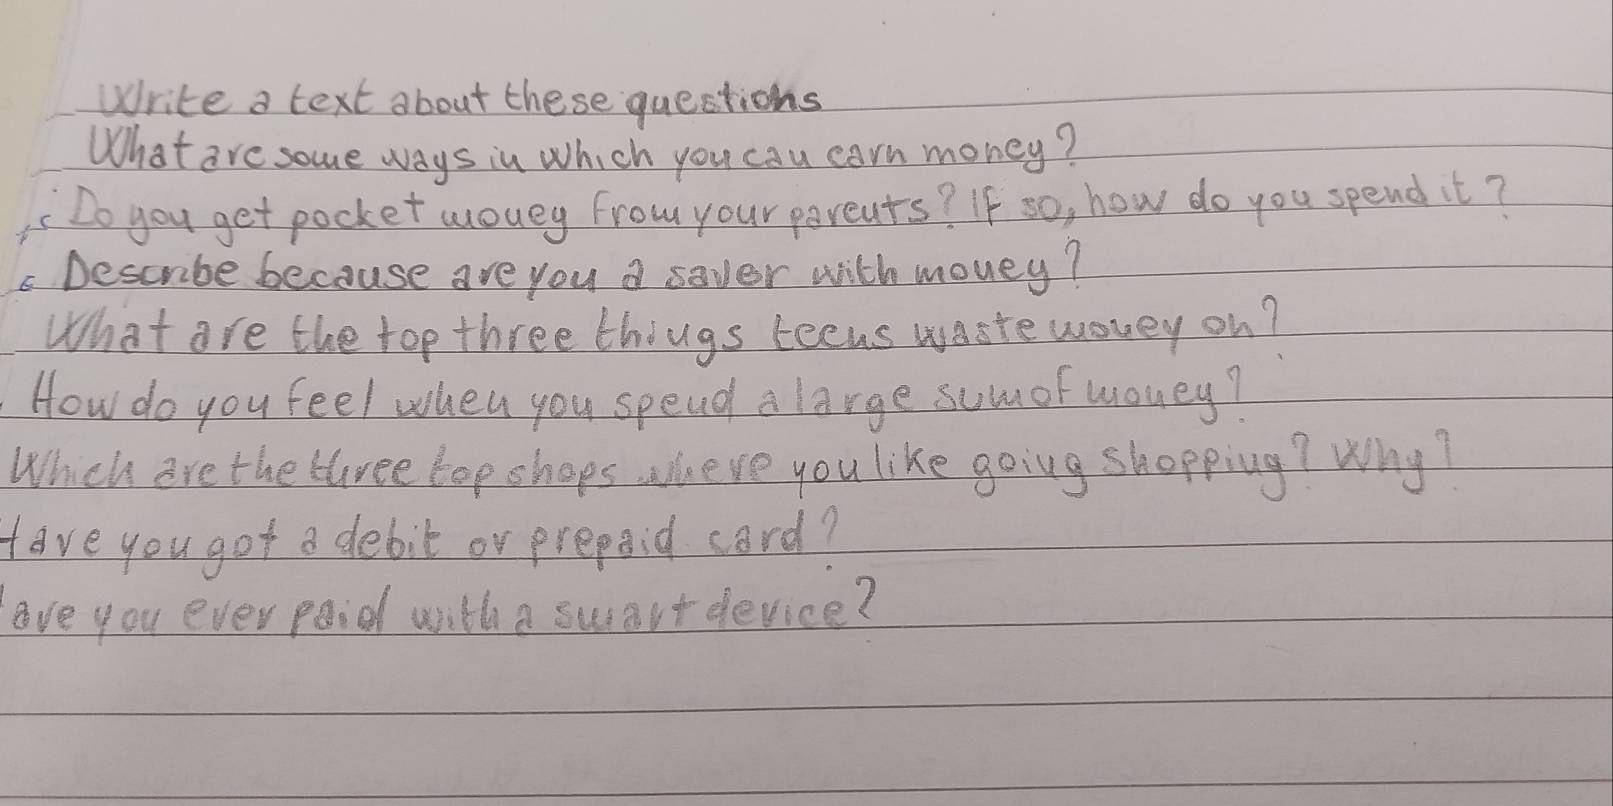 Write a text about these questions
What are some ways in which you can earn money?
Do you get pocket money from your parents? If so, how do you spend it?
Describe because are you a saver with money?
What are the top three things teens waste money on?
How do you feel when you spend a large sum of money?
Which are the three top shops where you like going shopping? Why?
Have you got a debit or prepaid card?
ave you ever paid with a smart device?